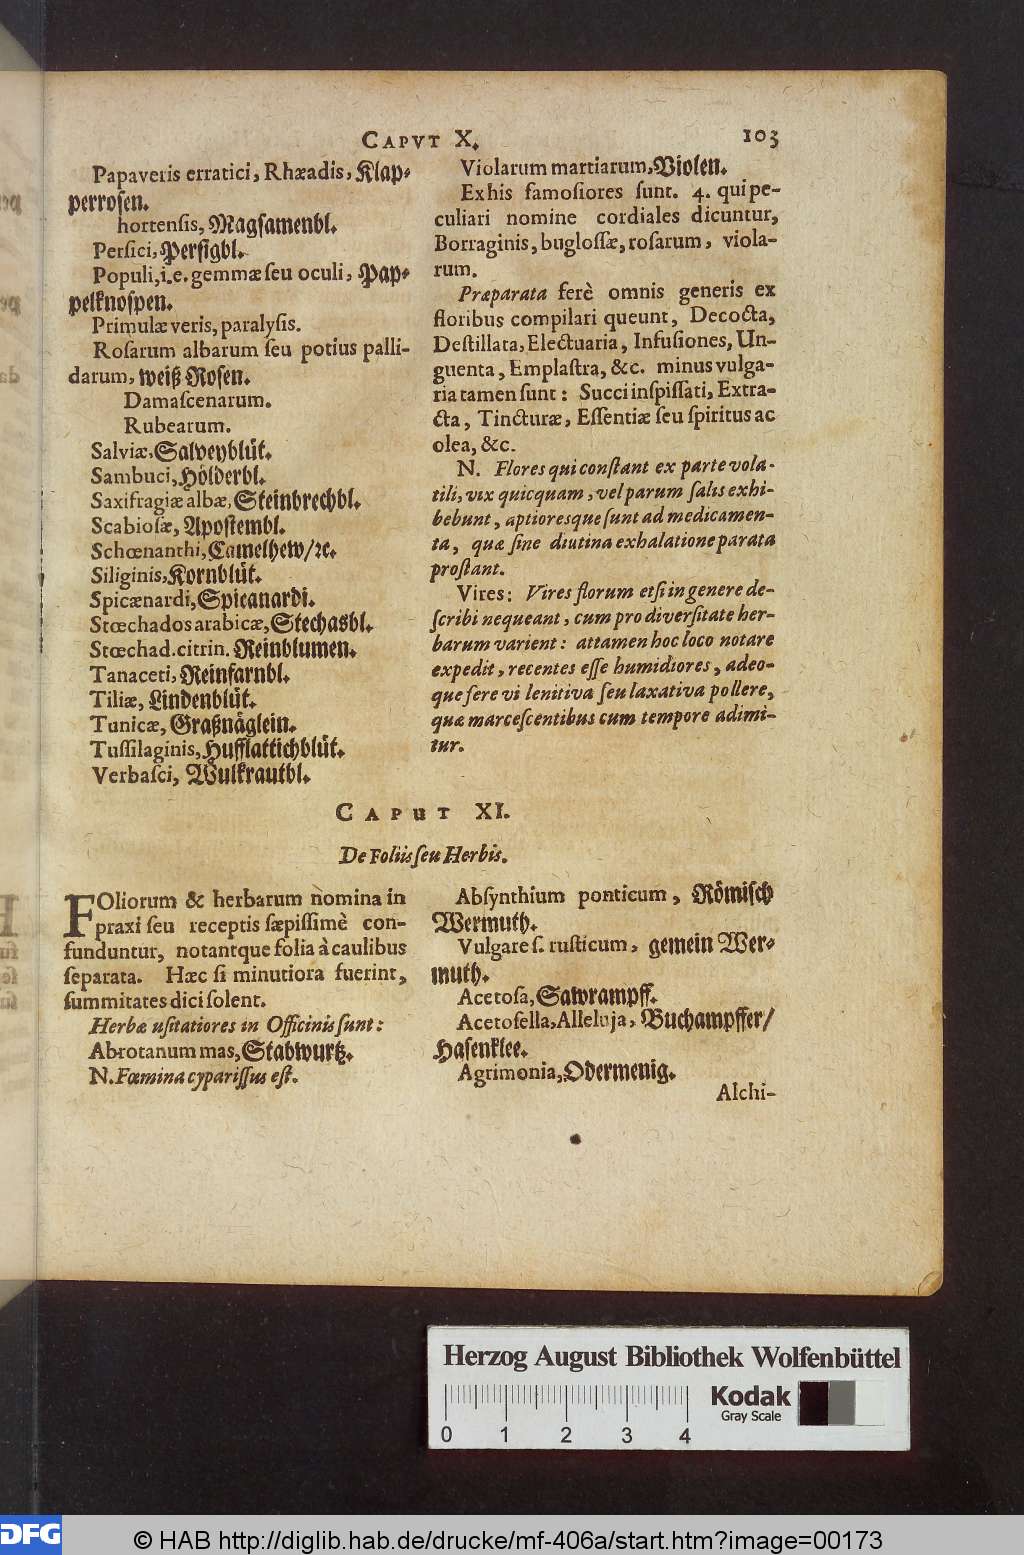 CAPVT X.
103
Papaveris erratici, Rhæadis, Klap-
perrosen.
hortensis, Magsamenbl.
Persici, Persigbl.
Populi, i.e. gemmæ seu oculi, Pap-
pelknospen.
Primulæ veris, paralysis.
Rosarum albarum seu potius palli-
darum, weiß Rosen.
Damascenarum.
Rubearum.
Salviæ, Salveyblüt.
Sambuci, Hölderbl.
Saxifragiæ albæ, Steinbrechbl.
Scabiosæ, Apostembl.
Schœnanthi, Camelhew/ꝛc.
Siliginis, Kornblüt.
Spicænardi, Spicanardi.
Stœchados arabicæ, Stechasbl.
Stœchad. citrin. Reinblumen.
Tanaceti, Reinfarnbl.
Tiliæ, Lindenblüt.
Tunicæ, Graßnäglein.
Tussilaginis, Hufflattichblüt.
Verbasci, Wulkrautbl.
Violarum martiarum, Violen.
Ex his famosiores sunt. 4. qui pe-
culiari nomine cordiales dicuntur,
Borraginis, buglossæ, rosarum, viola-
rum.
Præparata ferè omnis generis ex
floribus compilari queunt, Decocta,
Destillata, Electuaria, Infusiones, Un-
guenta, Emplastra, &c. minus vulga-
ria tamen sunt: Succi inspissati, Extra-
cta, Tincturæ, Essentiæ seu spiritus ac
olea, &c.
N. Flores qui constant ex parte vola-
tili, vix quicquam, vel parum salis exhi-
bebunt, aptioresque sunt ad medicamen-
ta, quæ sine diutina exhalatione parata
prostant.
Vires: Vires florum etsi in genere de-
scribi nequeant, cum pro diversitate her-
barum varient: attamen hoc loco notare
expedit, recentes esse humidiores, adeo-
que fere vi lenitiva seu laxativa pollere,
quæ marcescentibus cum tempore adimi-
tur.
CAPUT XI.
De Foliis seu Herbis.
FOliorum & herbarum nomina in
praxi seu receptis sæpissimè con-
funduntur, notantque folia à caulibus
separata. Hæc si minutiora fuerint,
summitates dici solent.
Herbæ usitatiores in Officinis sunt:
Abrotanum mas, Stabwurtz.
N. Fœmina cyparissus est.
Absynthium ponticum, Römisch
Wermuth.
Vulgare s. rusticum, gemein Wer-
muth.
Acetosa, Sawrampff.
Acetosella, Alleluja, Buchampffer/
Hasenklee.
Agrimonia, Odermenig.
Alchi-
Herzog August Bibliothek Wolfenbüttel
Kodak
Gray Scale
0 1 2 3 4
DFG
© HAB http://diglib.hab.de/drucke/mf-406a/start.htm?image=00173